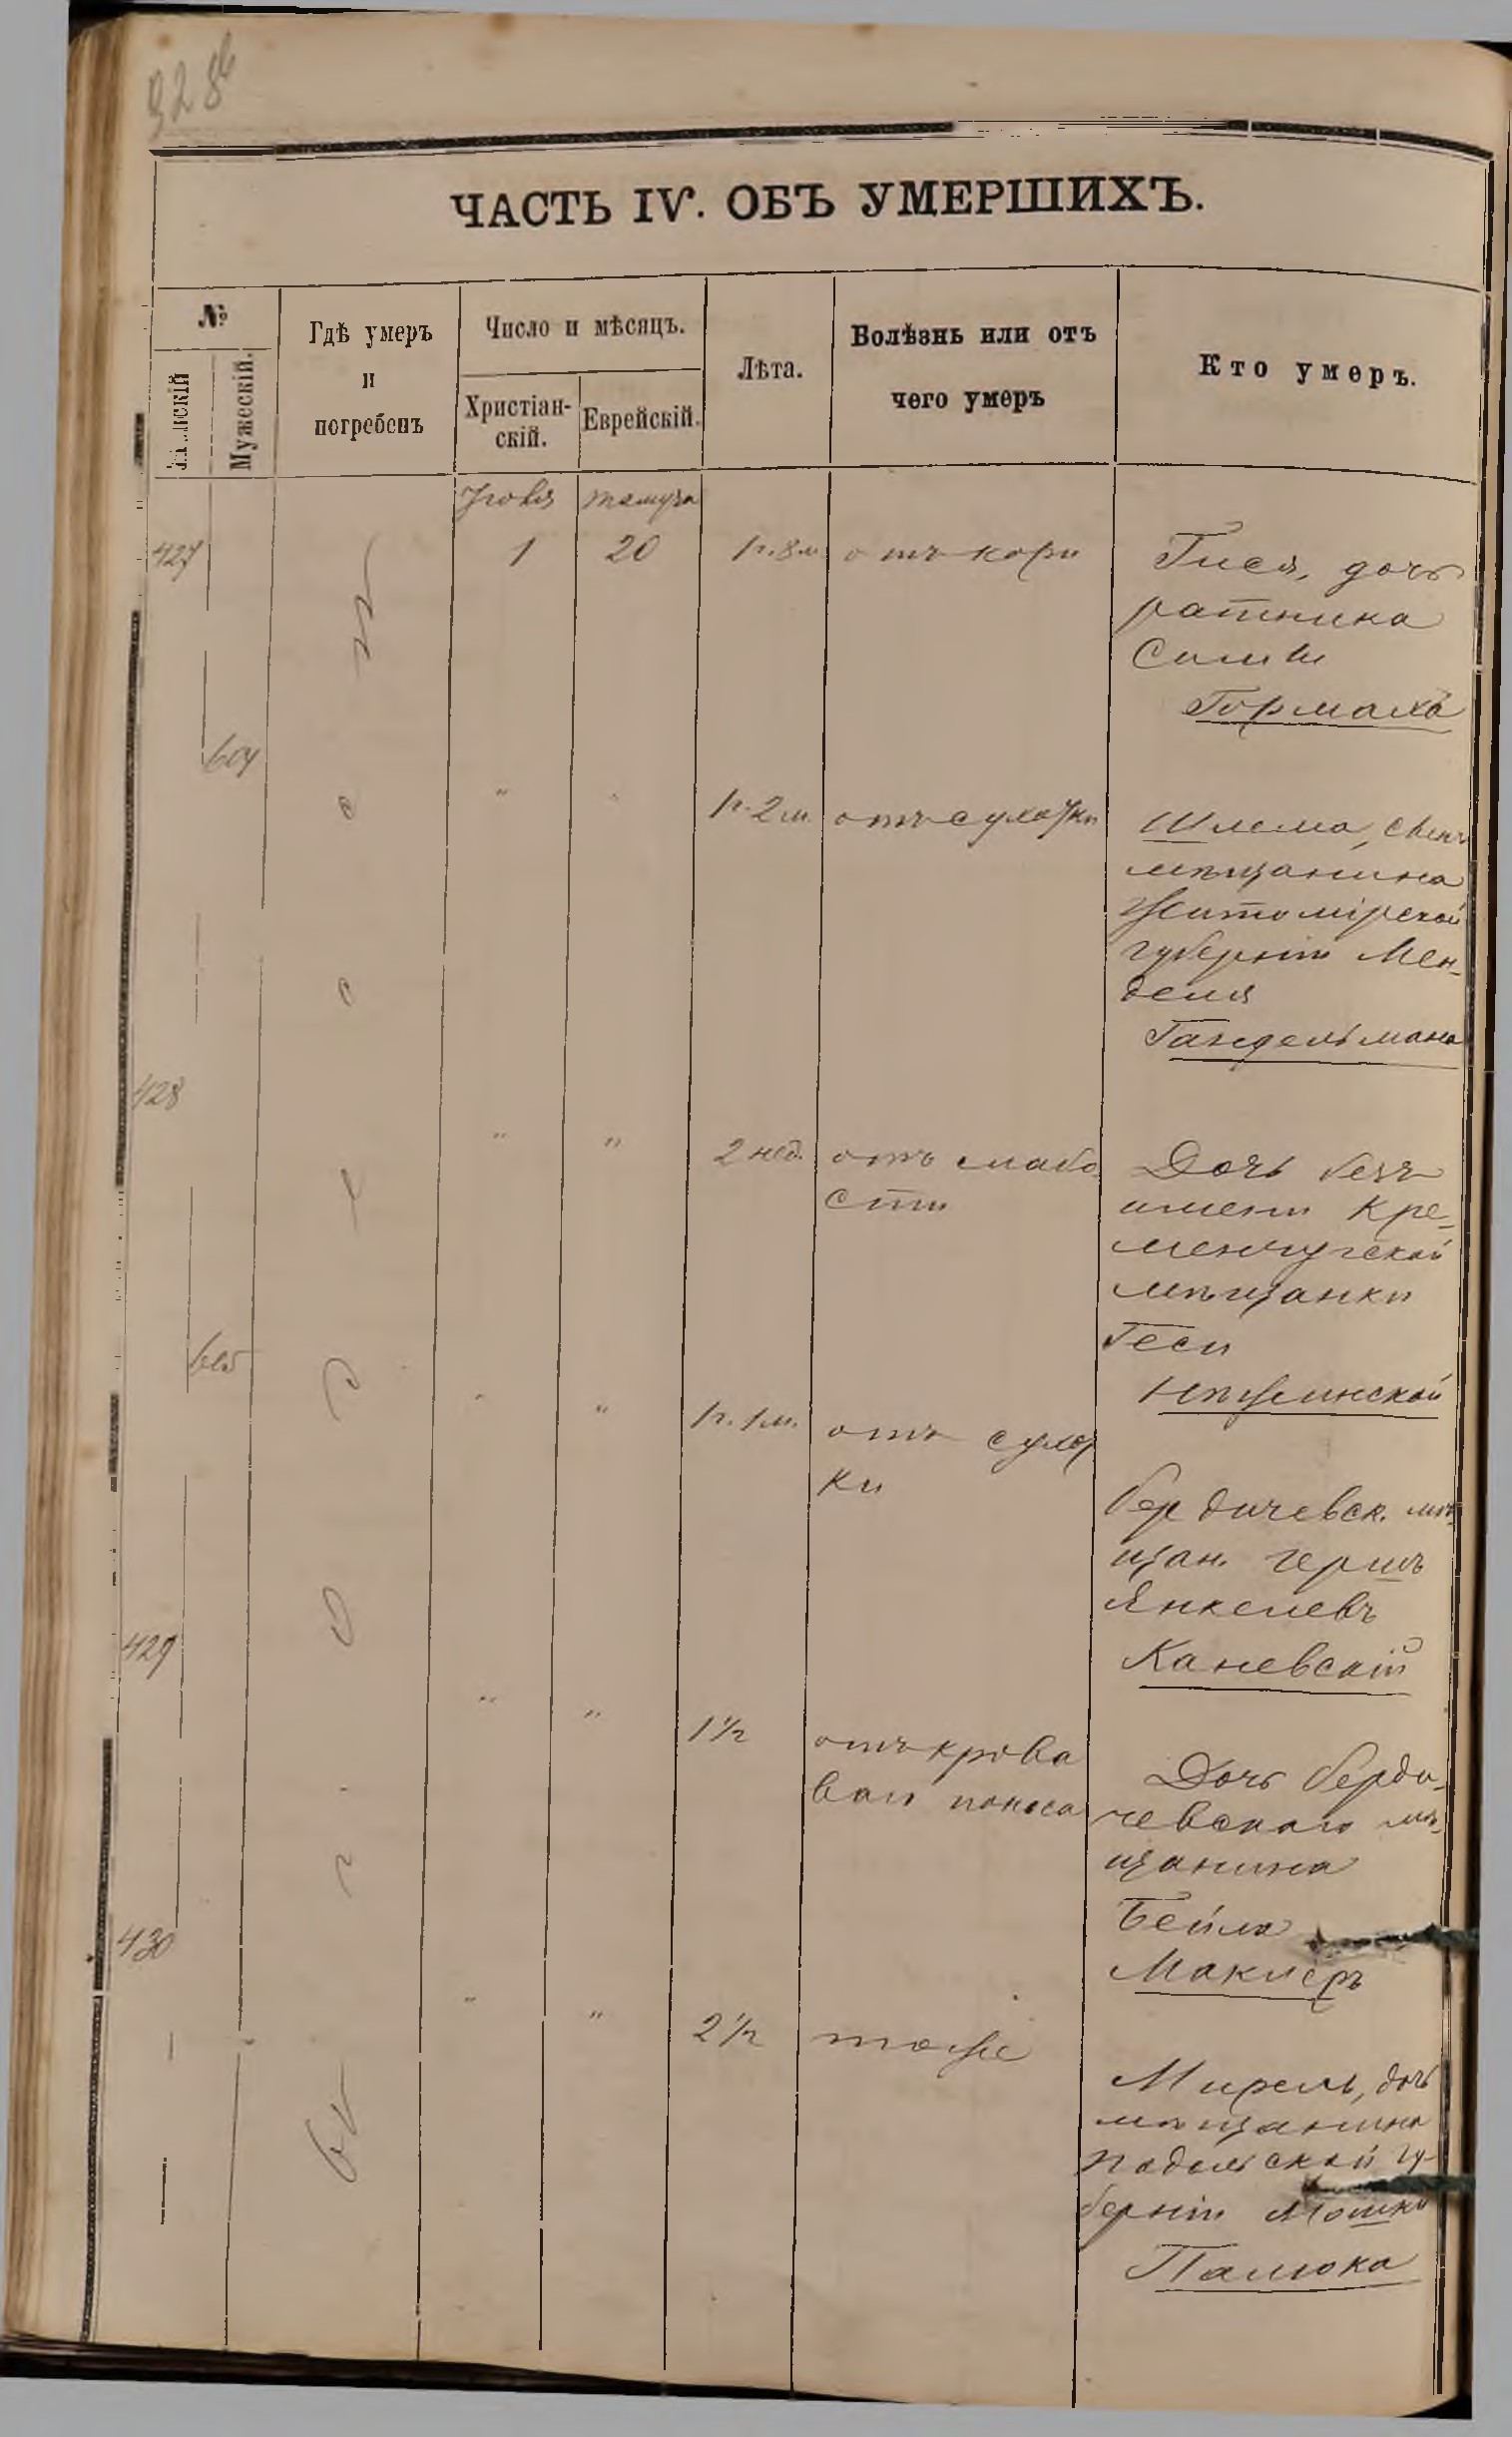 328б
ЧАСТЬ IV. ОБЪ УМЕРШИХЪ.
№
Женскій
Мужескій.
Гдѣ умеръ
и
погребенъ
Число и мѣсяцъ.
Христіан-
скій.
Еврейскій.
Лѣта.
Болѣзнь или отъ
чего умеръ
Кто умеръ.
Іюля
тамуза
427
1
20
1 г. 8 м.
отъ кори
Гися, дочь
ратника
Симхи
604
"
"
1 г. 2 м.
отъ сухотки
Шлема, сынъ
мѣщанина
Житомірской
губерніи Мен-
деля
Гандельмана
428
"
"
2 нед.
отъ слабо
сти
Дочь безъ
имени Кре-
менчугской
мѣщанки
Геси
Нѣжинской
605
"
"
1 г. 1 м.
отъ сухот
ки
бердичевск. мѣ-
щан. Гершъ
Янкелевъ
Каневскій
429
"
"
1 1/2
отъ крова
ваго поноса
Дочь берди-
чевскаго мѣ-
щанина
Бейла
Маклеръ
430
"
"
2 1/2
тоже
Мирель, дочь
мѣщанина
Подольской гу-
берніи Мошки
Палюка